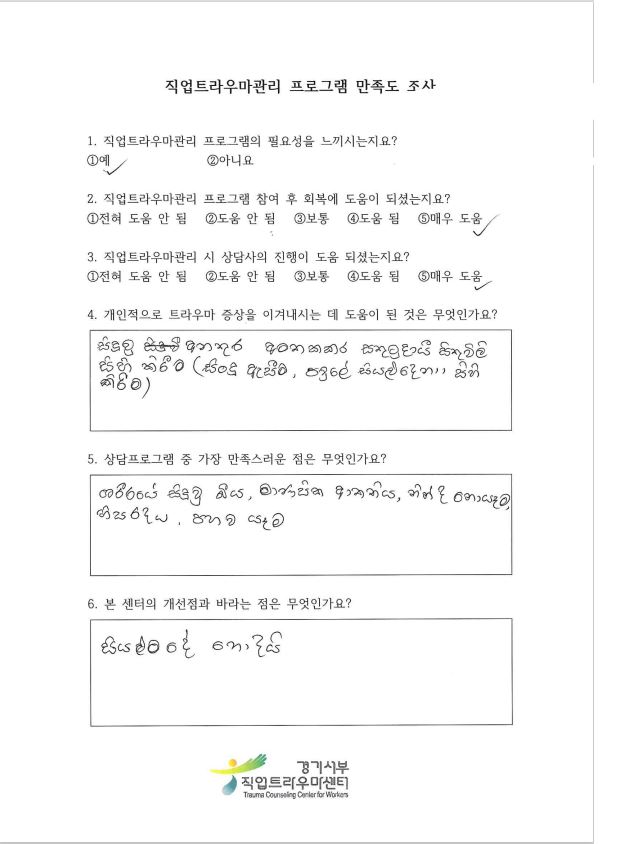 직업트라우마관리 프로그램 만족도 조사
1. 직업트라우마관리 프로그램의 필요성을 느끼시는지요?
①예 ②아니요
2. 직업트라우마관리 프로그램 참여 후 회복에 도움이 되셨는지요?
①전혀 도움 안 됨 ②도움 안 됨 ③보통 ④도움 됨 ⑤매우 도움
3. 직업트라우마관리 시 상담사의 진행이 도움 되셨는지요?
①전혀 도움 안 됨 ②도움 안 됨 ③보통 ④도움 됨 ⑤매우 도움
4. 개인적으로 트라우마 증상을 이겨내시는 데 도움이 된 것은 무엇인가요?
සිදුවු අනතුර අමතකකර සතුටුදායී සිතුවිලි
සිහි කිරීම (සිංදු ඇසීම, පවුලේ සියළුදෙනා සිහි
කිරීම)
5. 상담프로그램 중 가장 만족스러운 점은 무엇인가요?
ශරීරයේ සිදුවු බිය, මානසික ආතතිය, නින්ද නොයෑම,
හිසරදය, පහව යෑම
6. 본 센터의 개선점과 바라는 점은 무엇인가요?
සියළුම දේ හොඳයි
경기서부
직업트라우마센터
Trauma Counseling Center for Workers